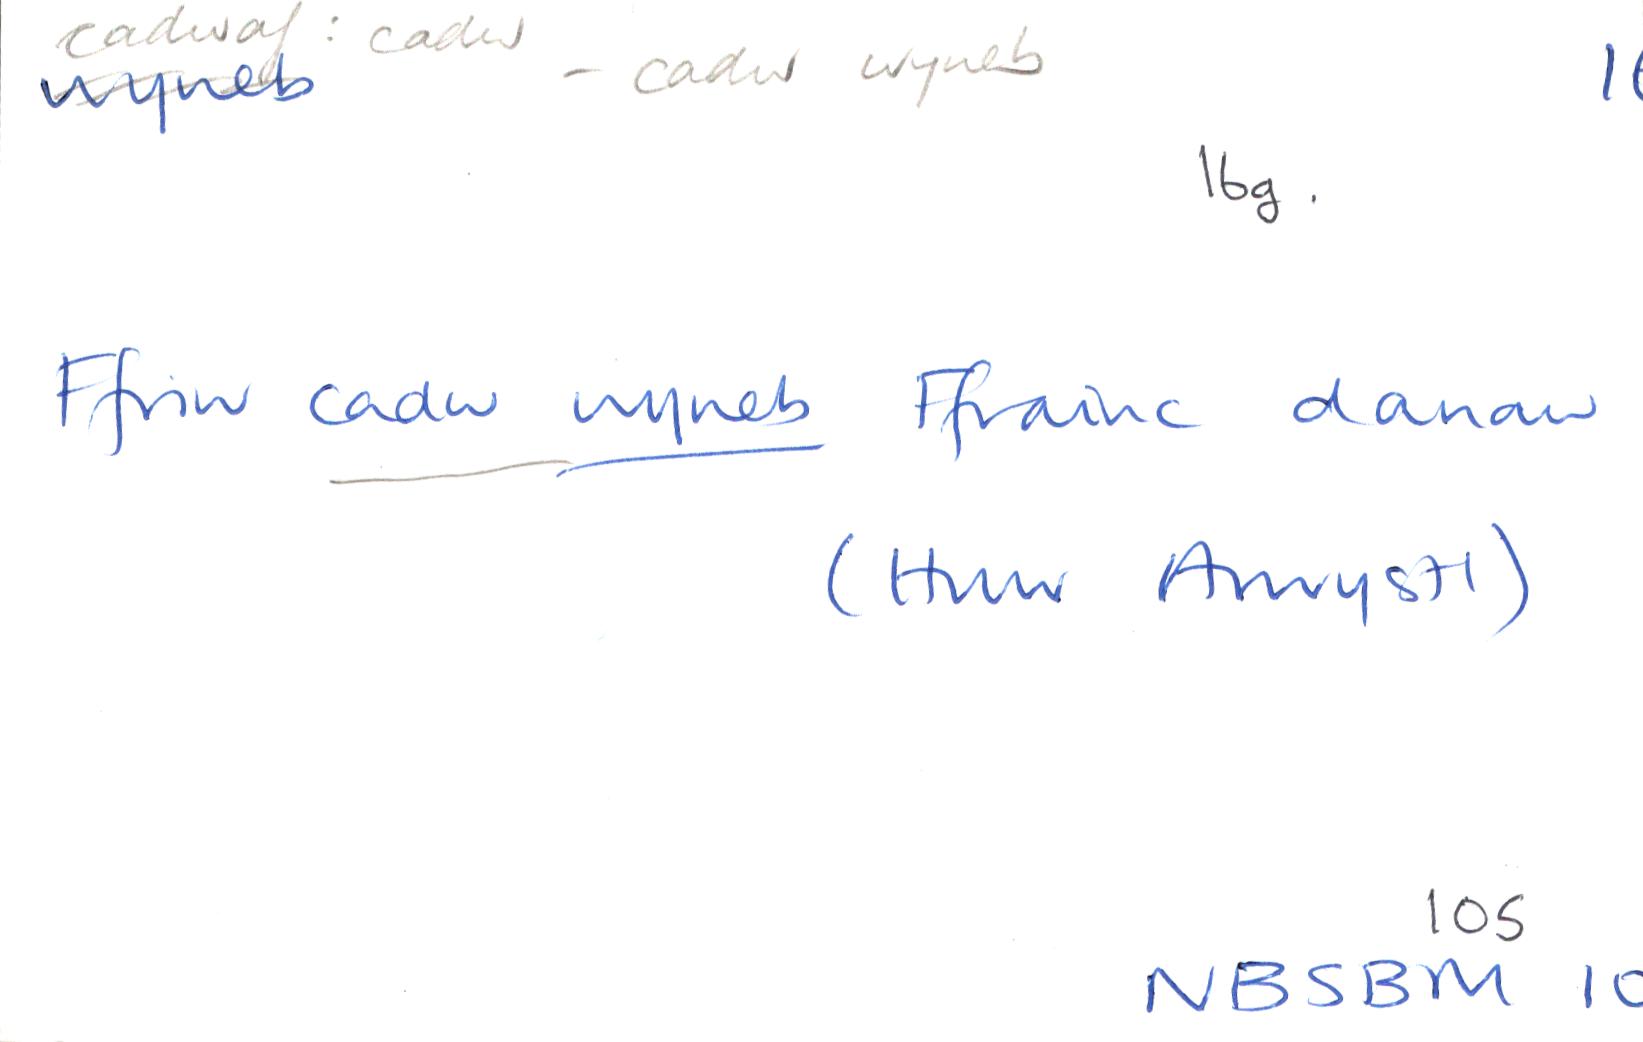 cadwaf: cadw
- cadw wyneb
wyneb
16g.
Ffriw cadw wyneb Ffrainc danaw
(Huw Arwystl)
105
NBSBM 10